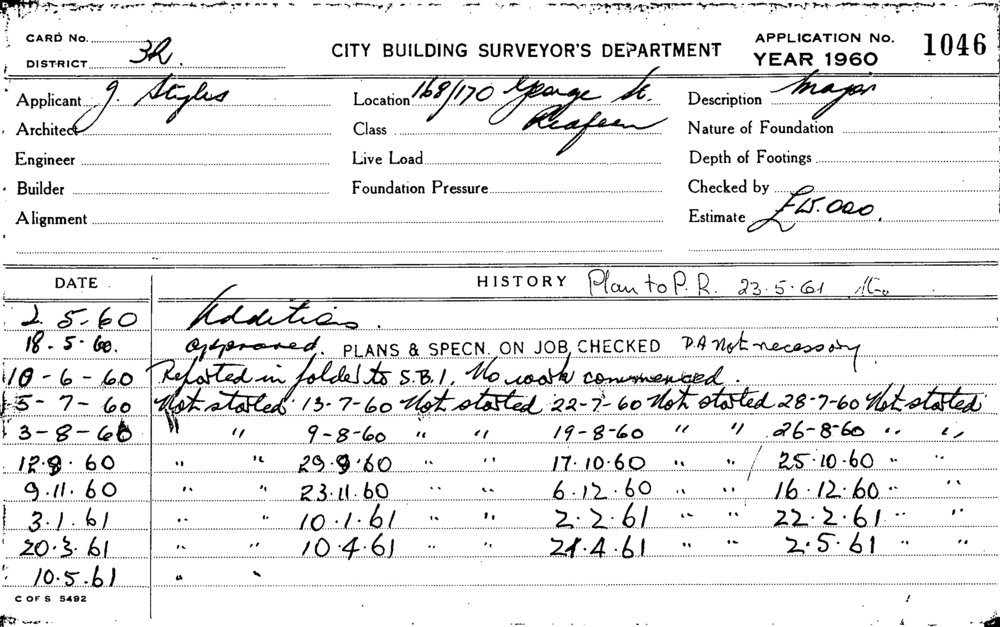 CARD No.
DISTRICT 3R
CITY BUILDING SURVEYOR'S DEPARTMENT
APPLICATION No. 1046
YEAR 1960
Applicant J. Styles
Location 168/170 George St.
Redfern
Description Major
Architect
Class
Nature of Foundation
Engineer
Live Load
Depth of Footings
Builder
Foundation Pressure
Checked by
Alignment
Estimate £15.000.
DATE
HISTORY Plan to P.R. 23.5.61
2.5-60 Additions.
18-5-60. approved. PLANS & SPECN. ON JOB CHECKED D.A Not necessary
10-6-60 Reported in folder to S.B.I. No work commenced.
5-7-60 Not started 13-7-60 Not started 22-7-60 Not started 28-7-60 Not started
3-8-60 " " 9-8-60 " " 19-8-60 " " 26-8-60 " "
12.9.60 " " 29.9.60 " " 17.10.60 " " 25.10.60 " "
9.11.60 " " 23.11.60 " " 6.12.60 " " 16.12.60 " "
3.1.61 " " 10.1.61 " " 2.2.61 " " 22.2.61 " "
20.3.61 " " 10.4.61 " " 21.4.61 " " 2.5.61 " "
10.5.61 " "
C OF S 5492